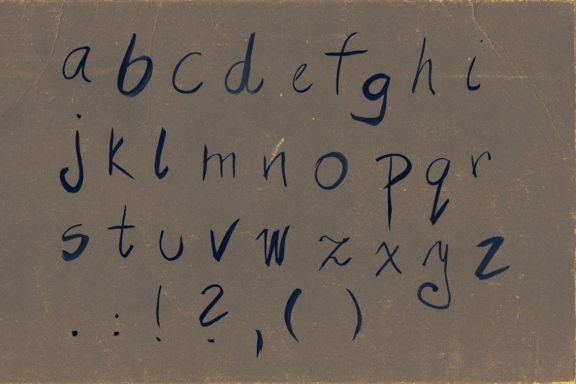 a b c d e f g h i
j k l m n o p q r
s t u v w z x y z
. : ! ? , ( )